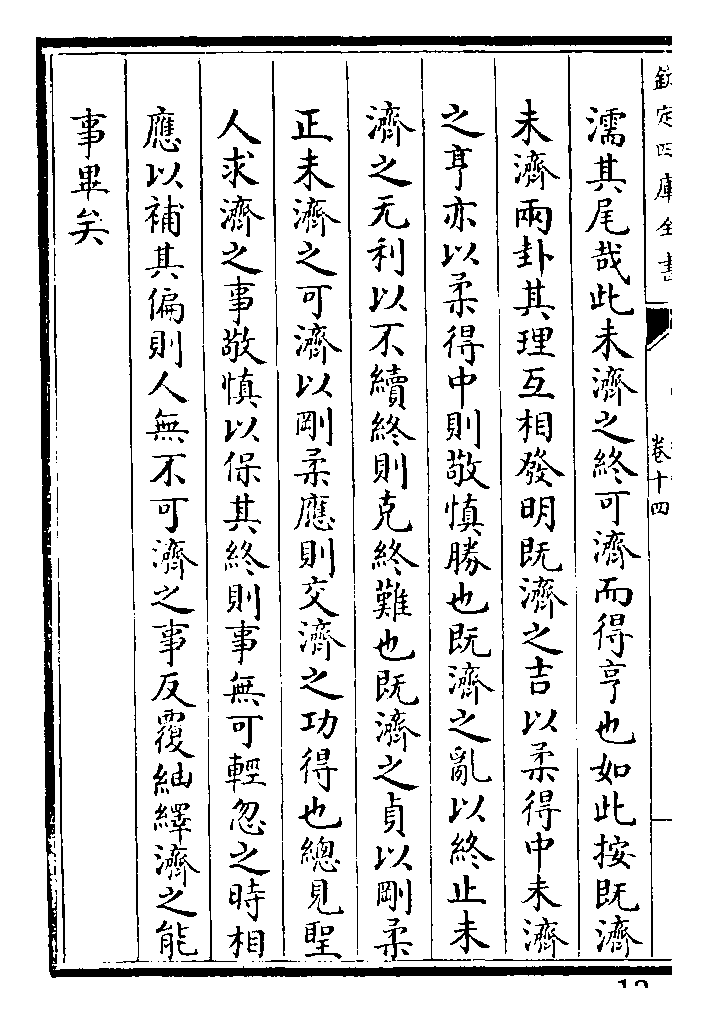 欽定四庫全書
卷十四
濡其尾哉此未濟之終可濟而得亨也如此按既濟
未濟兩卦其理互相發明既濟之吉以柔得中未濟
之亨亦以柔得中則敬慎勝也既濟之亂以終止未
濟之无利以不續終則克終難也既濟之貞以剛柔
正未濟之可濟以剛柔應則交濟之功得也總見聖
人求濟之事敬慎以保其終則事無可輕忽之時相
應以補其偏則人無不可濟之事反覆紬繹濟之能
事畢矣